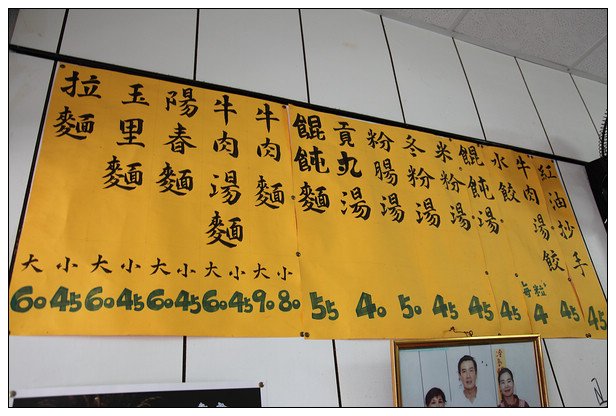 拉麵 大 小 60 45
玉里麵 大 小 60 45
陽春麵 大 小 60 45
牛肉湯麵 大 小 60 45
牛肉麵 大 小 90 80
餛飩麵 55
貢丸湯 40
粉腸湯 50
冬粉湯 45
米粉湯 45
餛飩湯 45
水餃 每粒 4
牛肉湯餃 45
紅油抄手 45